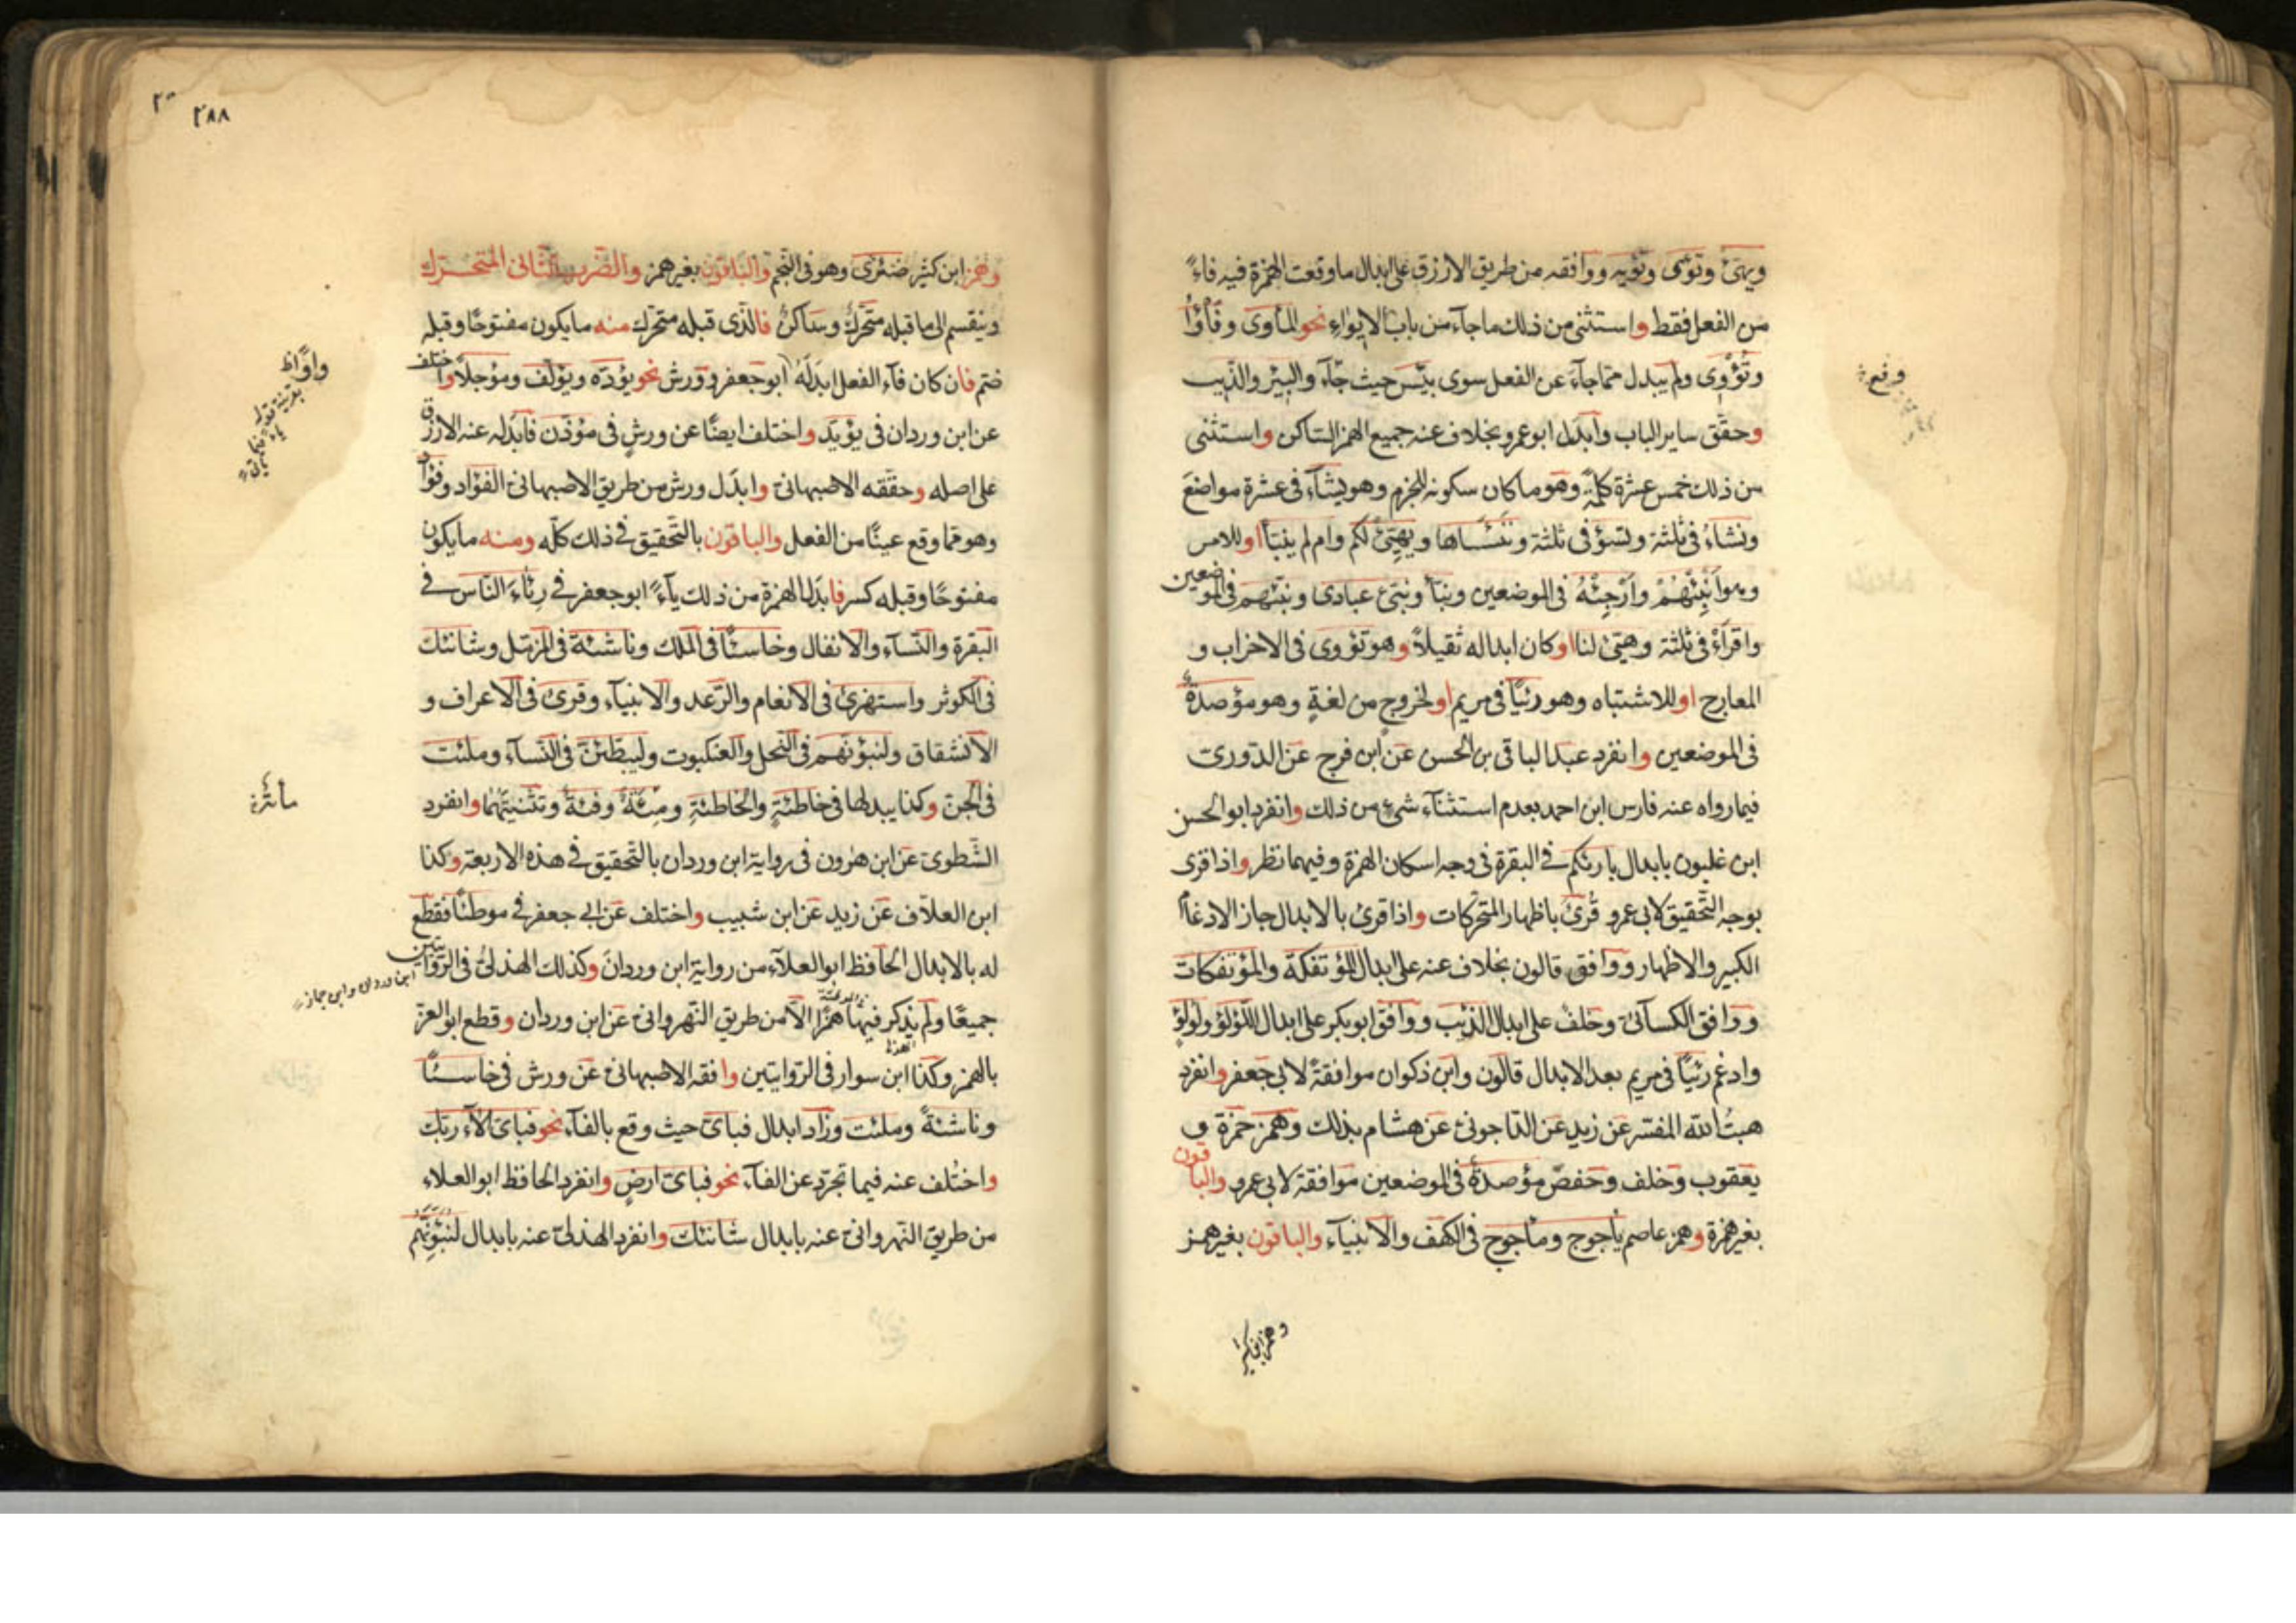 ويهئ وتؤى وتؤيه ووافقه من طريق الازرق على ابدال ما وقعت الهمزة فيه فاء
من الفعل فقط واستثنى من ذلك ما جاء من باب الايواء نحو المأوى وفأوا
وتؤوى ولم يبدل مما جاء عن الفعل سوى بئس حيث جاء والبئر والذئب
وحقق ساير الباب وابدل ابو عمرو بخلاف عنه جميع الهمز الساكن واستثنى
من ذلك خمس عشرة كلمة وهو ما كان سكونه للجزم وهو يشاء فى عشرة مواضع
ونشاء فى ثلثة وتسؤ فى ثلثة وننسأها ويهيئ لكم وام لم ينبأ او للامر
وهو انبئهم وارجئه فى الموضعين ونبأ ونبئ عبادى ونبئهم فى الموضعين
واقرأ فى ثلثة وهيئ لنا او كان ابداله ثقيلا وهو تؤوى فى الاحزاب و
المعارج او للاشتباه وهو رئيا فى مريم او لخروج من لغة وهو مؤصدة
فى الموضعين وانفرد عبد الباقى بن الحسن عن ابن فرج عن الدورى
فيما رواه عنه فارس ابن احمد بعدم استثناء شئ من ذلك وانفرد ابو الحسن
ابن غلبون بابدال بارئكم فى البقرة فى وجه اسكان الهمزة وفيهما نظر واذا قرى
بوجه التحقيق لابى عمرو قرئ باظهار المتحركات واذا قرئ بالابدال جاز الادغام
الكبير والاظهار ووافق قالون بخلاف عنه على ابدال المؤتفكة والمؤتفكات
ووافق الكسائى وخلف على ابدال الذئب ووافق ابو بكر على ابدال اللؤلؤ ولؤلؤ
وادغم رئيا فى مريم بعد الابدال قالون وابن ذكوان موافقة لابى جعفر وانفرد
هبت الله المفسر عن زيد عن الداجونى عن هشام بذلك وهمز حمزة و
يعقوب وخلف وحفص مؤصدة فى الموضعين موافقة لابى عمرو والباقون
بغير همزة وهمز عاصم يأجوج ومأجوج فى الكهف والانبياء والباقون بغير همز
وهمز ابن كثير
٢٨٨
وهمز ابن كثير ضئزى وهو فى النجم والباقون بغير همز والضرب الثانى المتحرك
وينقسم الى ما قبله متحرك وساكن فالذى قبله متحرك منه ما يكون مفتوحا وقبله
ضم فان كان فاء الفعل ابدله ابو جعفر وورش نحو يؤده ويؤلف ومؤجلا واختلف
عن ابن وردان فى يؤيد واختلف ايضا عن ورش فى مؤذن فابدله عنه الازرق
على اصله وحققه الاصبهانى وابدل ورش من طريق الاصبهانى الفؤاد وفؤاد
وهو مما وقع عينا من الفعل والباقون بالتحقيق فى ذلك كله ومنه ما يكون
مفتوحا وقبله كسر فابدل الهمزة من ذلك ياء ابو جعفر فى رئاء الناس فى
البقرة والنساء والانفال وخاسئا فى الملك وناشئة فى المزمل وشانئك
فى الكوثر واستهزئ فى الانعام والرعد والانبياء وقرئ فى الاعراف و
الانشقاق ولنبوئنهم فى النحل والعنكبوت وليبطئن فى النساء وملئت
فى الجن وكذا يبدلها فى خاطئة والخاطئة ومئة وفئة وتثنيتهما وانفرد
الشطوى عن ابن هرون فى رواية ابن وردان بالتحقيق فى هذه الاربعة وكذا
ابن العلاف عن زيد عن ابن شبيب واختلف عن ابى جعفر فى موطئا فقطع
له بالابدال الحافظ ابو العلاء من رواية ابن وردان وكذلك الهذلى فى الروايتين
ابن وردان وابن جماز
جميعا ولم يذكر فيها همزا الا من طريق النهروانى عن ابن وردان وقطع ابو العز
بالهمز وكذا ابن سوار فى الروايتين وافقه الاصبهانى عن ورش فى خاسئا
وناشئة وملئت وزاد ابدال فباى حيث وقع بالفاء نحو فباى الاء ربك
واختلف عنه فيما تجرد عن الفاء نحو فباى ارض وانفرد الحافظ ابو العلاء
من طريق النهروانى عنه بابدال شانئك وانفرد الهذلى عنه بابدال لنبوئنهم